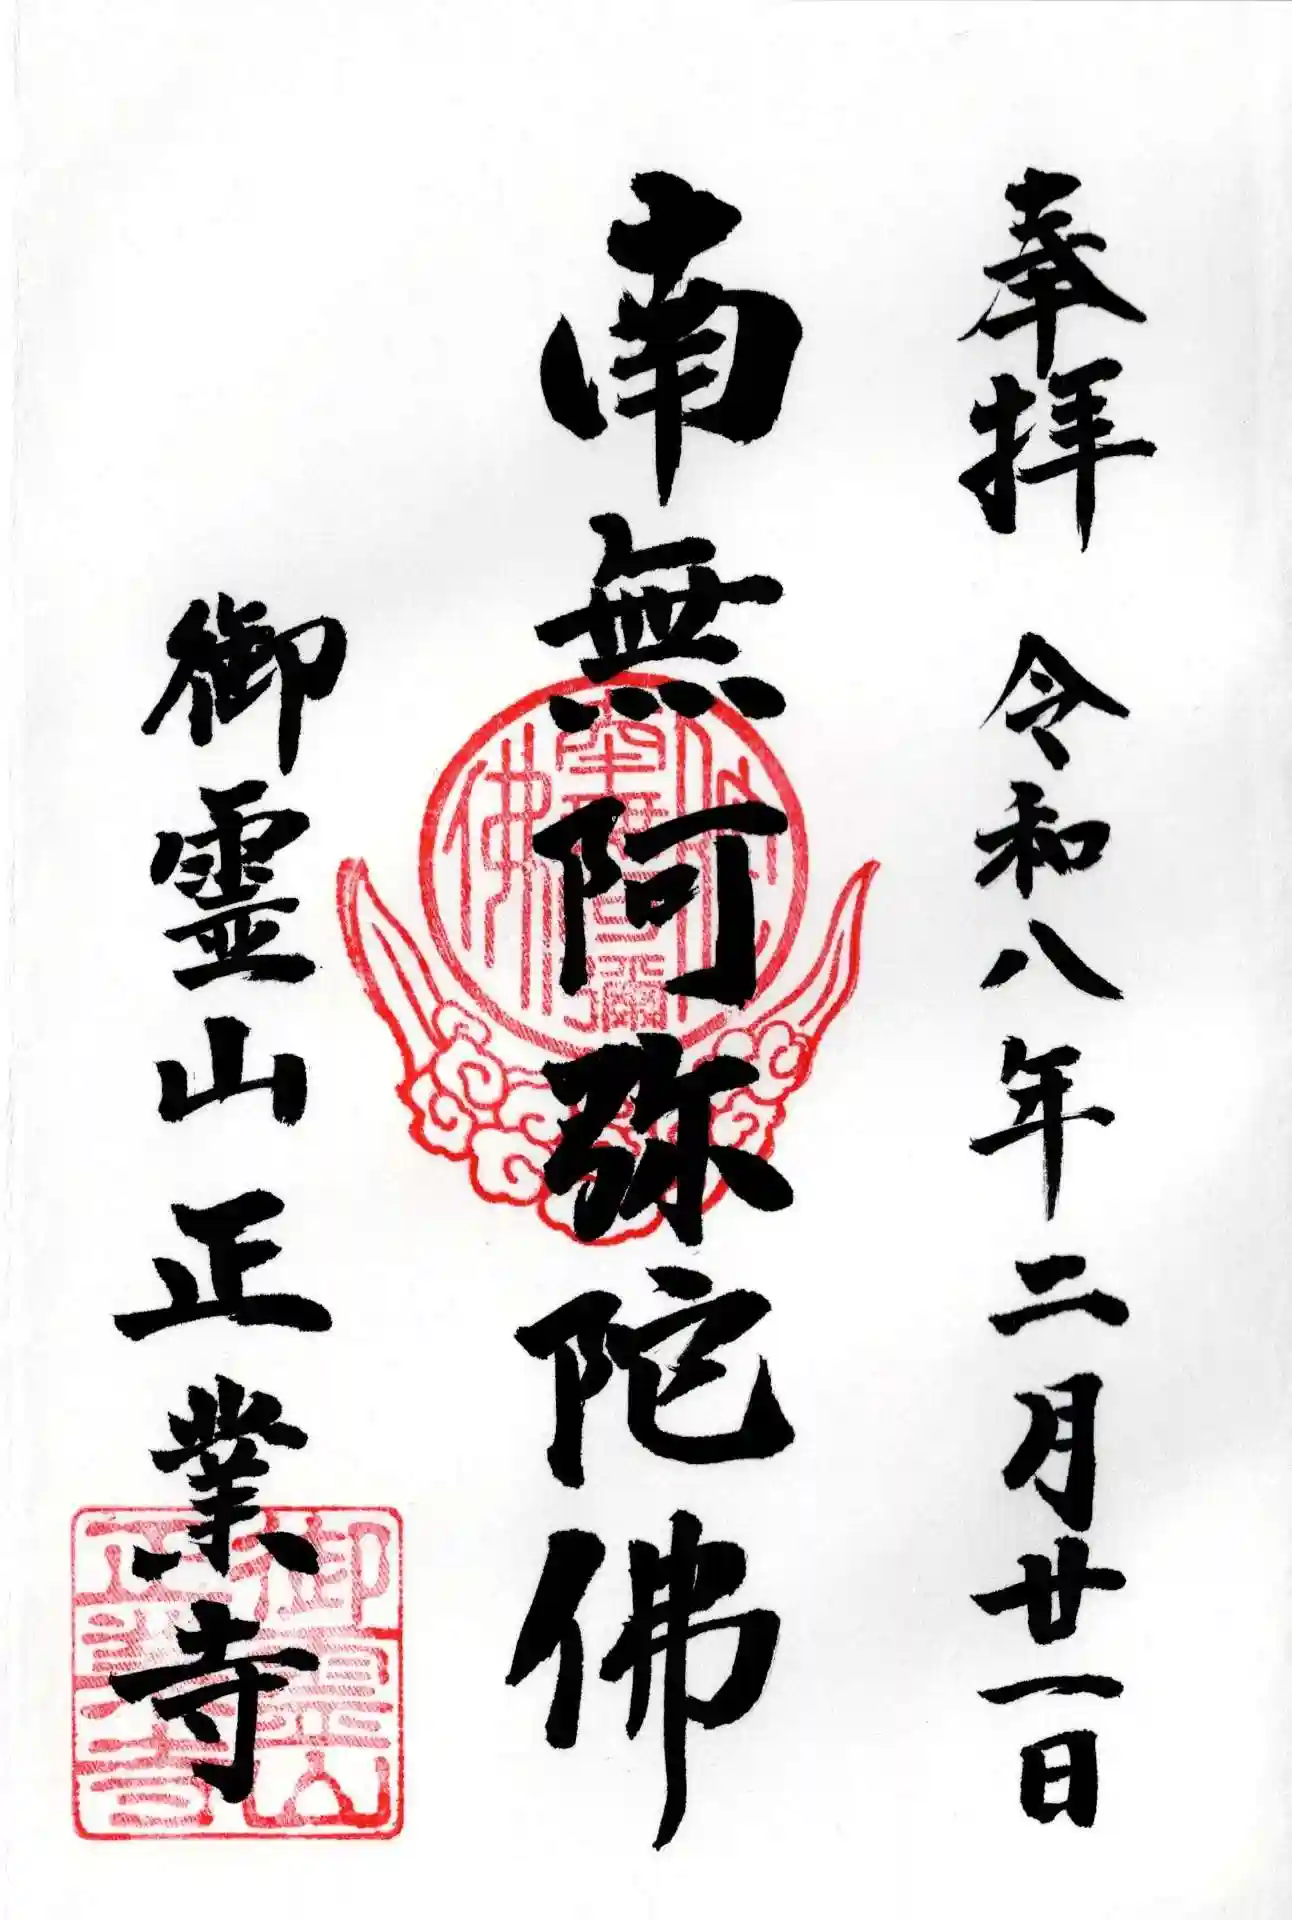 奉拝 令和八年二月廿一日
南無阿弥陀佛
御霊山正業寺
御霊山
正業寺